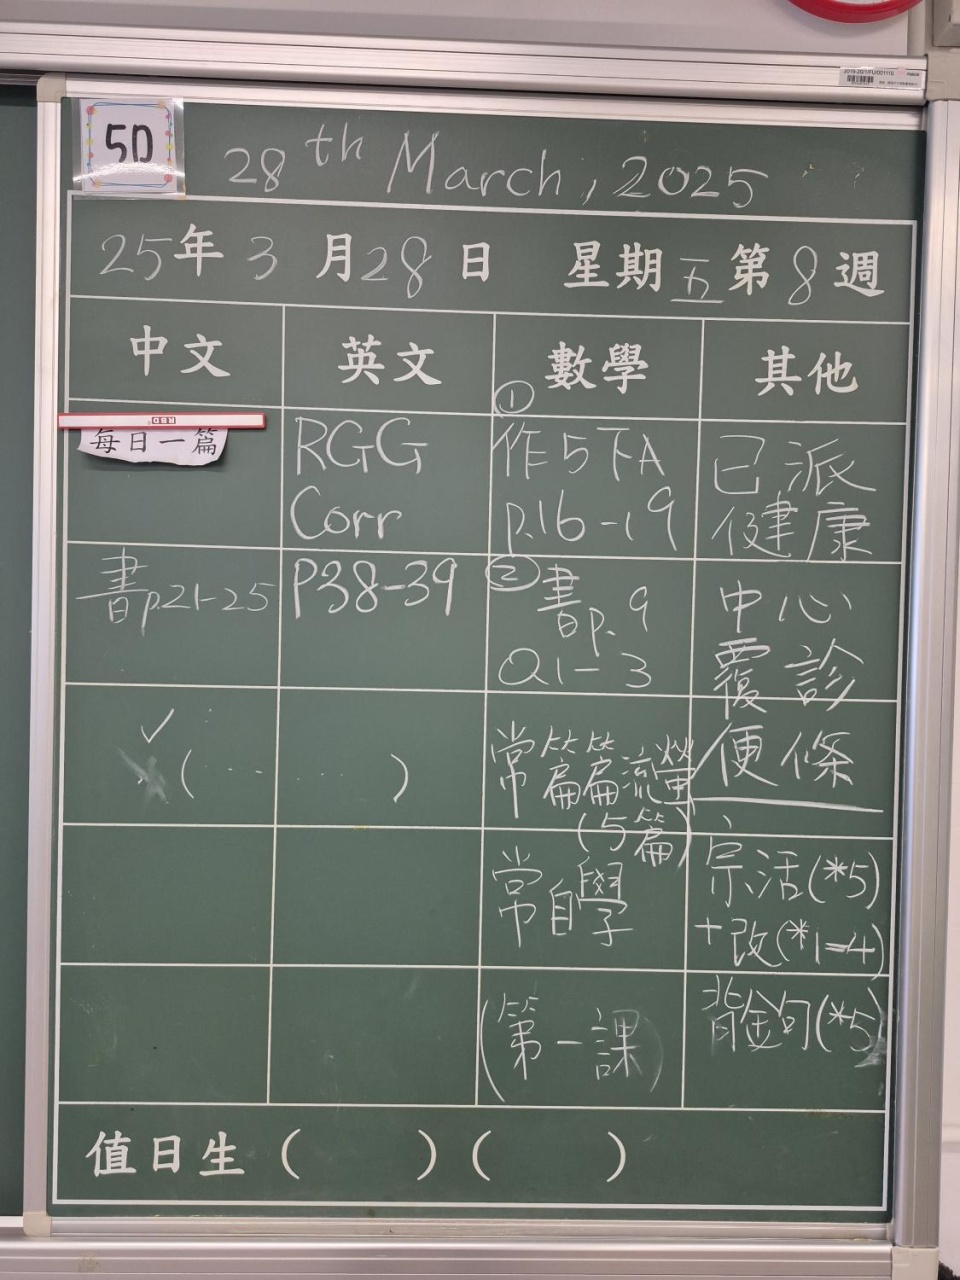 5D
28th March, 2025
25年 3月28日 星期五 第8週
中文 英文 數學 其他
每日一篇
書p.21-25
✓
( )
RGG
Corr
P38-39
①
作5下A
p.16-19
②書p.9
Q1-3
常篇篇流螢
(5篇)
常自學
(第一課)
已派
健康
中心
覆診
便條
宗活(*5)
+改(*1-4)
背金句(*5)
值日生 ( ) ( )